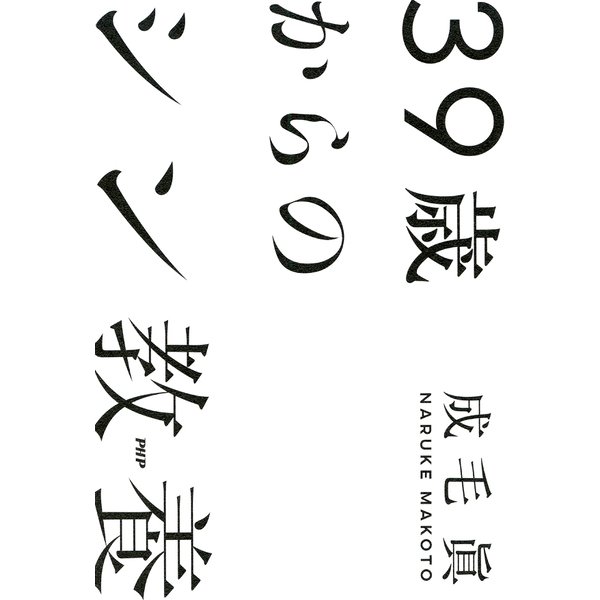 39歳
からの
シン
教養
成毛眞
NARUKE MAKOTO
PHP